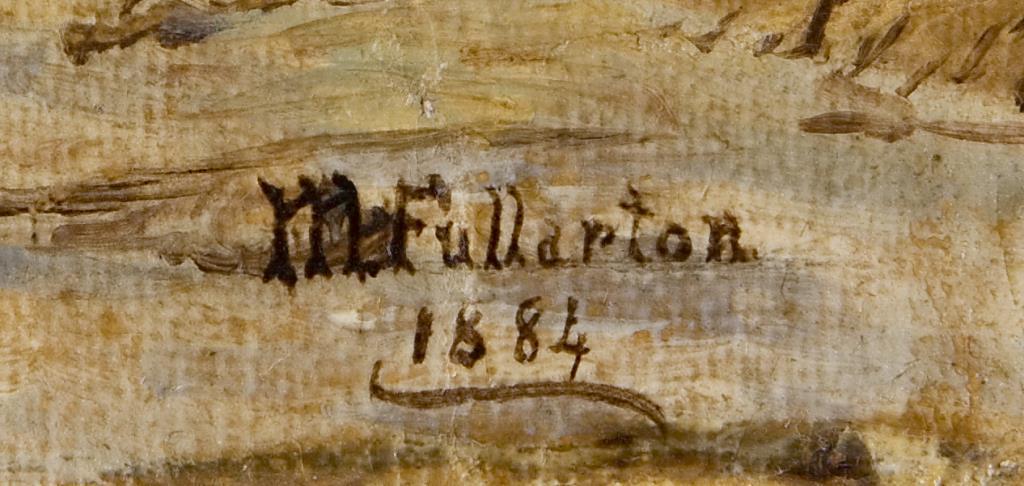 M Fullarton
1884